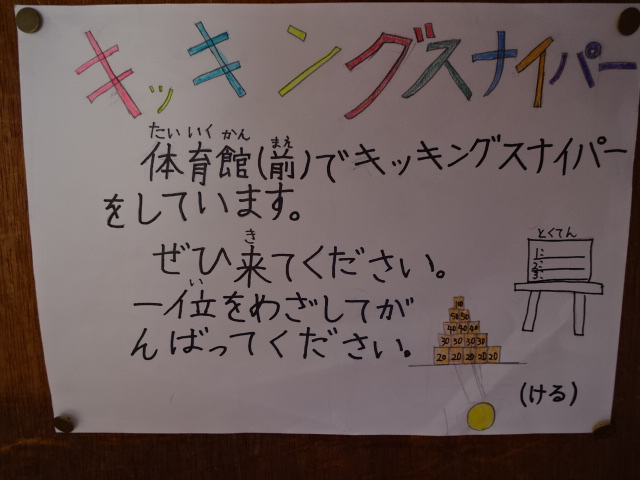 キッキングスナイパー
たいいくかん まえ
体育館(前)でキッキングスナイパー
をしています。
き
ぜひ来てください。
い
一位をめざしてが
んばってください。
とくてん
1:
2:
3:
10
50 50
40 40 40
30 30 30 30
20 20 20 20 20
(ける)